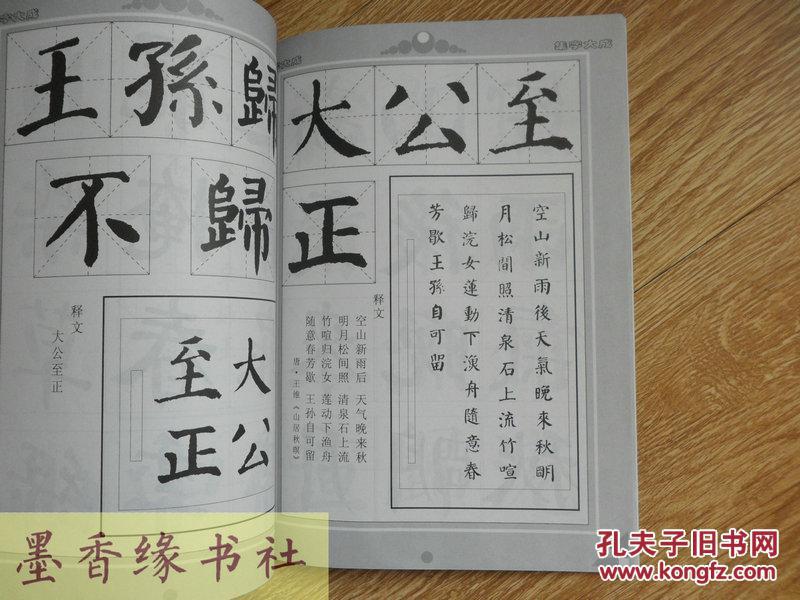 集字大成
王孫歸
不歸
释文
大公至正
大公
至正
集字大成
大公至
正
空山新雨後天氣晚來秋明
月松間照清泉石上流竹喧
歸浣女蓮動下漁舟隨意春
芳歇王孫自可留
释文
空山新雨后 天气晚来秋
明月松间照 清泉石上流
竹喧归浣女 莲动下渔舟
随意春芳歇 王孙自可留
唐·王维《山居秋暝》
墨香缘书社
孔夫子旧书网
www.kongfz.com